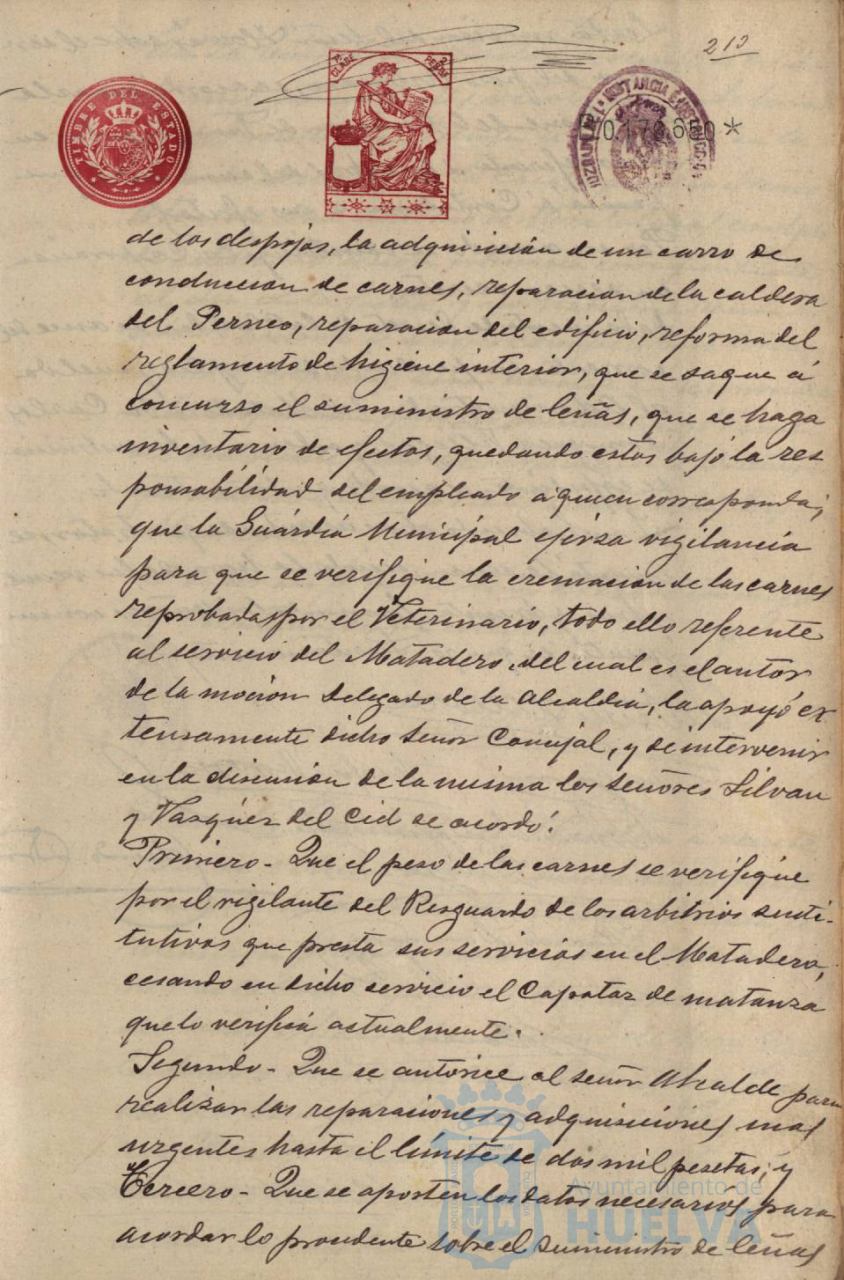 213
TIMBRE DEL ESTADO
7ª CLASE
2 PESETAS
JUZGADO DE 1ª INSTANCIA E INSTRUCCION
0.178.650*
de los despojos, la adquisición de un carro de
conduccion de carnes, reparacion de la caldera
del Perneo, reparacion del edificio, reforma del
reglamento de higiene interior, que se saque á
concurso el suministro de leñas, que se haga
inventario de efectos, quedando estos bajo la res
ponsabilidad del empleado á quien corresponda;
que la Guardia Municipal ejerza vigilancia
para que se verifique la cremacion de las carnes
reprobadas por el Veterinario, todo ello referente
al servicio del Matadero, del cual es el autor
de la moción Delegado de la Alcaldia, la apoyó ex
tensamente dicho Señor Concejal, y de intervenir
en la discusion de la misma los señores Silvan
y Vazquez del Cid se acordó:
Primero - Que el peso de las carnes se verifique
por el vigilante del Resguardo de los arbitrios susti-
tutivos que presta sus servicios en el Matadero,
cesando en dicho servicio el Capataz de matanza
que lo verifica actualmente.
Segundo - Que se autorice al señor Alcalde para
realizar las reparaciones y adquisiciones mas
urgentes hasta el limite de dos mil pesetas; y
Tercero - Que se aporten los datos necesarios para
acordar lo procedente sobre el suministro de leñas
Ayuntamiento de
HUELVA